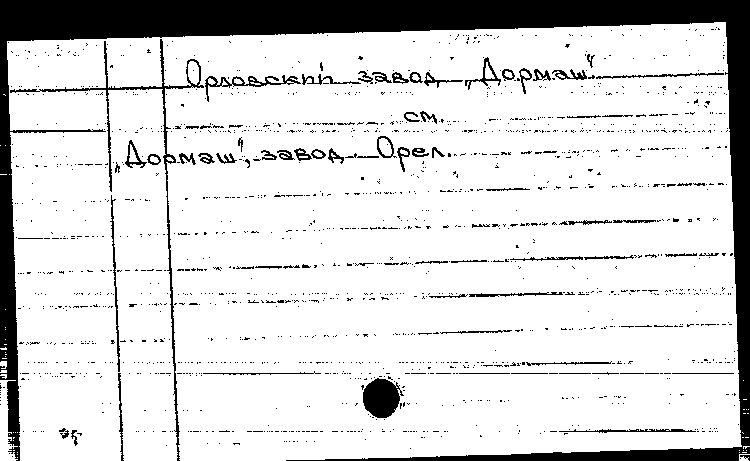 Орловский завод „Дормаш“
см.
„Дормаш“, завод. Орел.